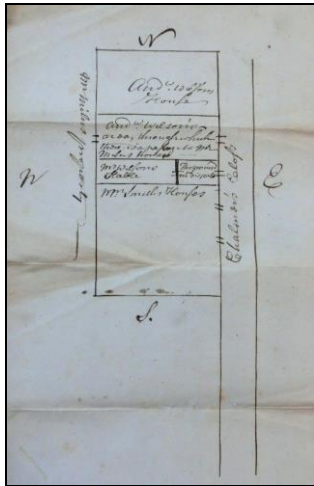 N
And: Wilsons
House
And: Wilson's
area, through which
there is a passage to Mr
Millers Houses
Mr Wilsons
Stable
The ground
in dispute
Mr Smith's Houses
W
E
Chalmers Close
S.